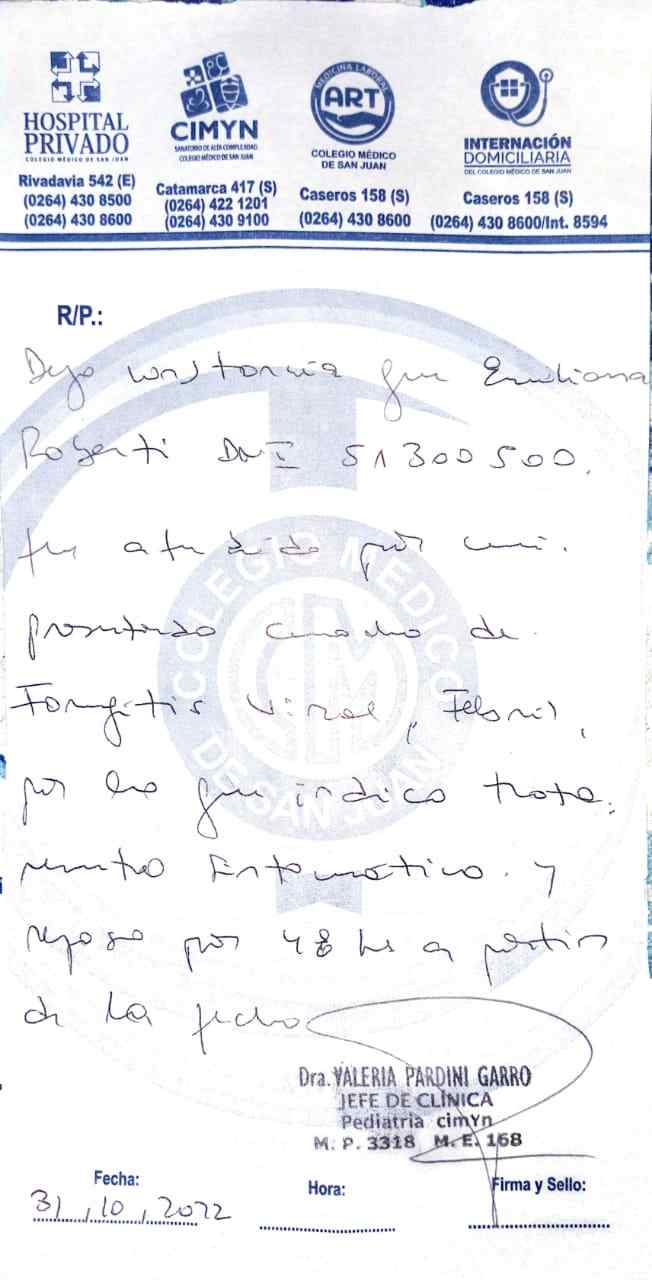 HOSPITAL
PRIVADO
COLEGIO MÉDICO DE SAN JUAN
Rivadavia 542 (E)
(0264) 430 8500
(0264) 430 8600
CIMYN
SANATORIO DE ALTA COMPLEJIDAD
COLEGIO MÉDICO DE SAN JUAN
Catamarca 417 (S)
(0264) 422 1201
(0264) 430 9100
MEDICINA LABORAL
ART
COLEGIO MÉDICO
DE SAN JUAN
Caseros 158 (S)
(0264) 430 8600
INTERNACIÓN
DOMICILIARIA
DEL COLEGIO MÉDICO DE SAN JUAN
Caseros 158 (S)
(0264) 430 8600/Int. 8594
R/P.:
Dejo constancia que Emiliana
Roberti DNI 51300500.
fue atendido por mi.
presentando cuadro de
Faringitis viral, Febril,
por lo que indico trata-
miento sintomático. y
reposo por 48 hs a partir
de la fecha
COLEGIO MEDICO
DE SAN JUAN
CM
Dra. VALERIA PARDINI GARRO
JEFE DE CLÍNICA
Pediatría cimYn
M. P. 3318 M. E. 168
Fecha:
31, 10, 2022
Hora:
Firma y Sello: